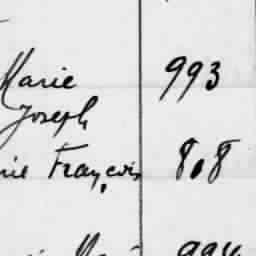 Marie 993
Joseph
François 808